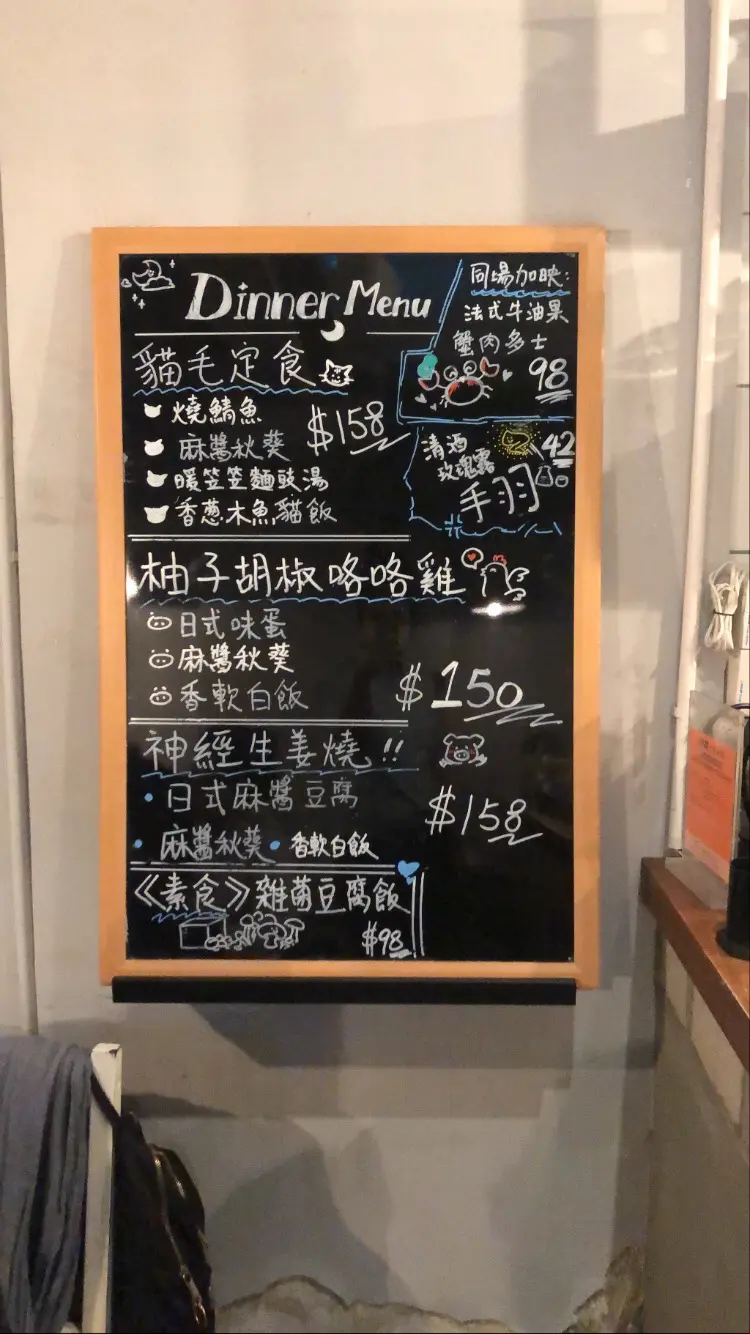 Dinner Menu
貓毛定食
燒鯖魚
麻醬秋葵
$158
暖笠笠麵豉湯
香蔥木魚貓飯
同場加映:
法式牛油果
蟹肉多士
98
清酒
玫瑰露
手羽
42
柚子胡椒咯咯雞
日式味蛋
麻醬秋葵
香軟白飯
$150
神經生姜燒!!
•日式麻醬豆腐
•麻醬秋葵•香軟白飯
$158
《素食》雜菌豆腐飯
$98